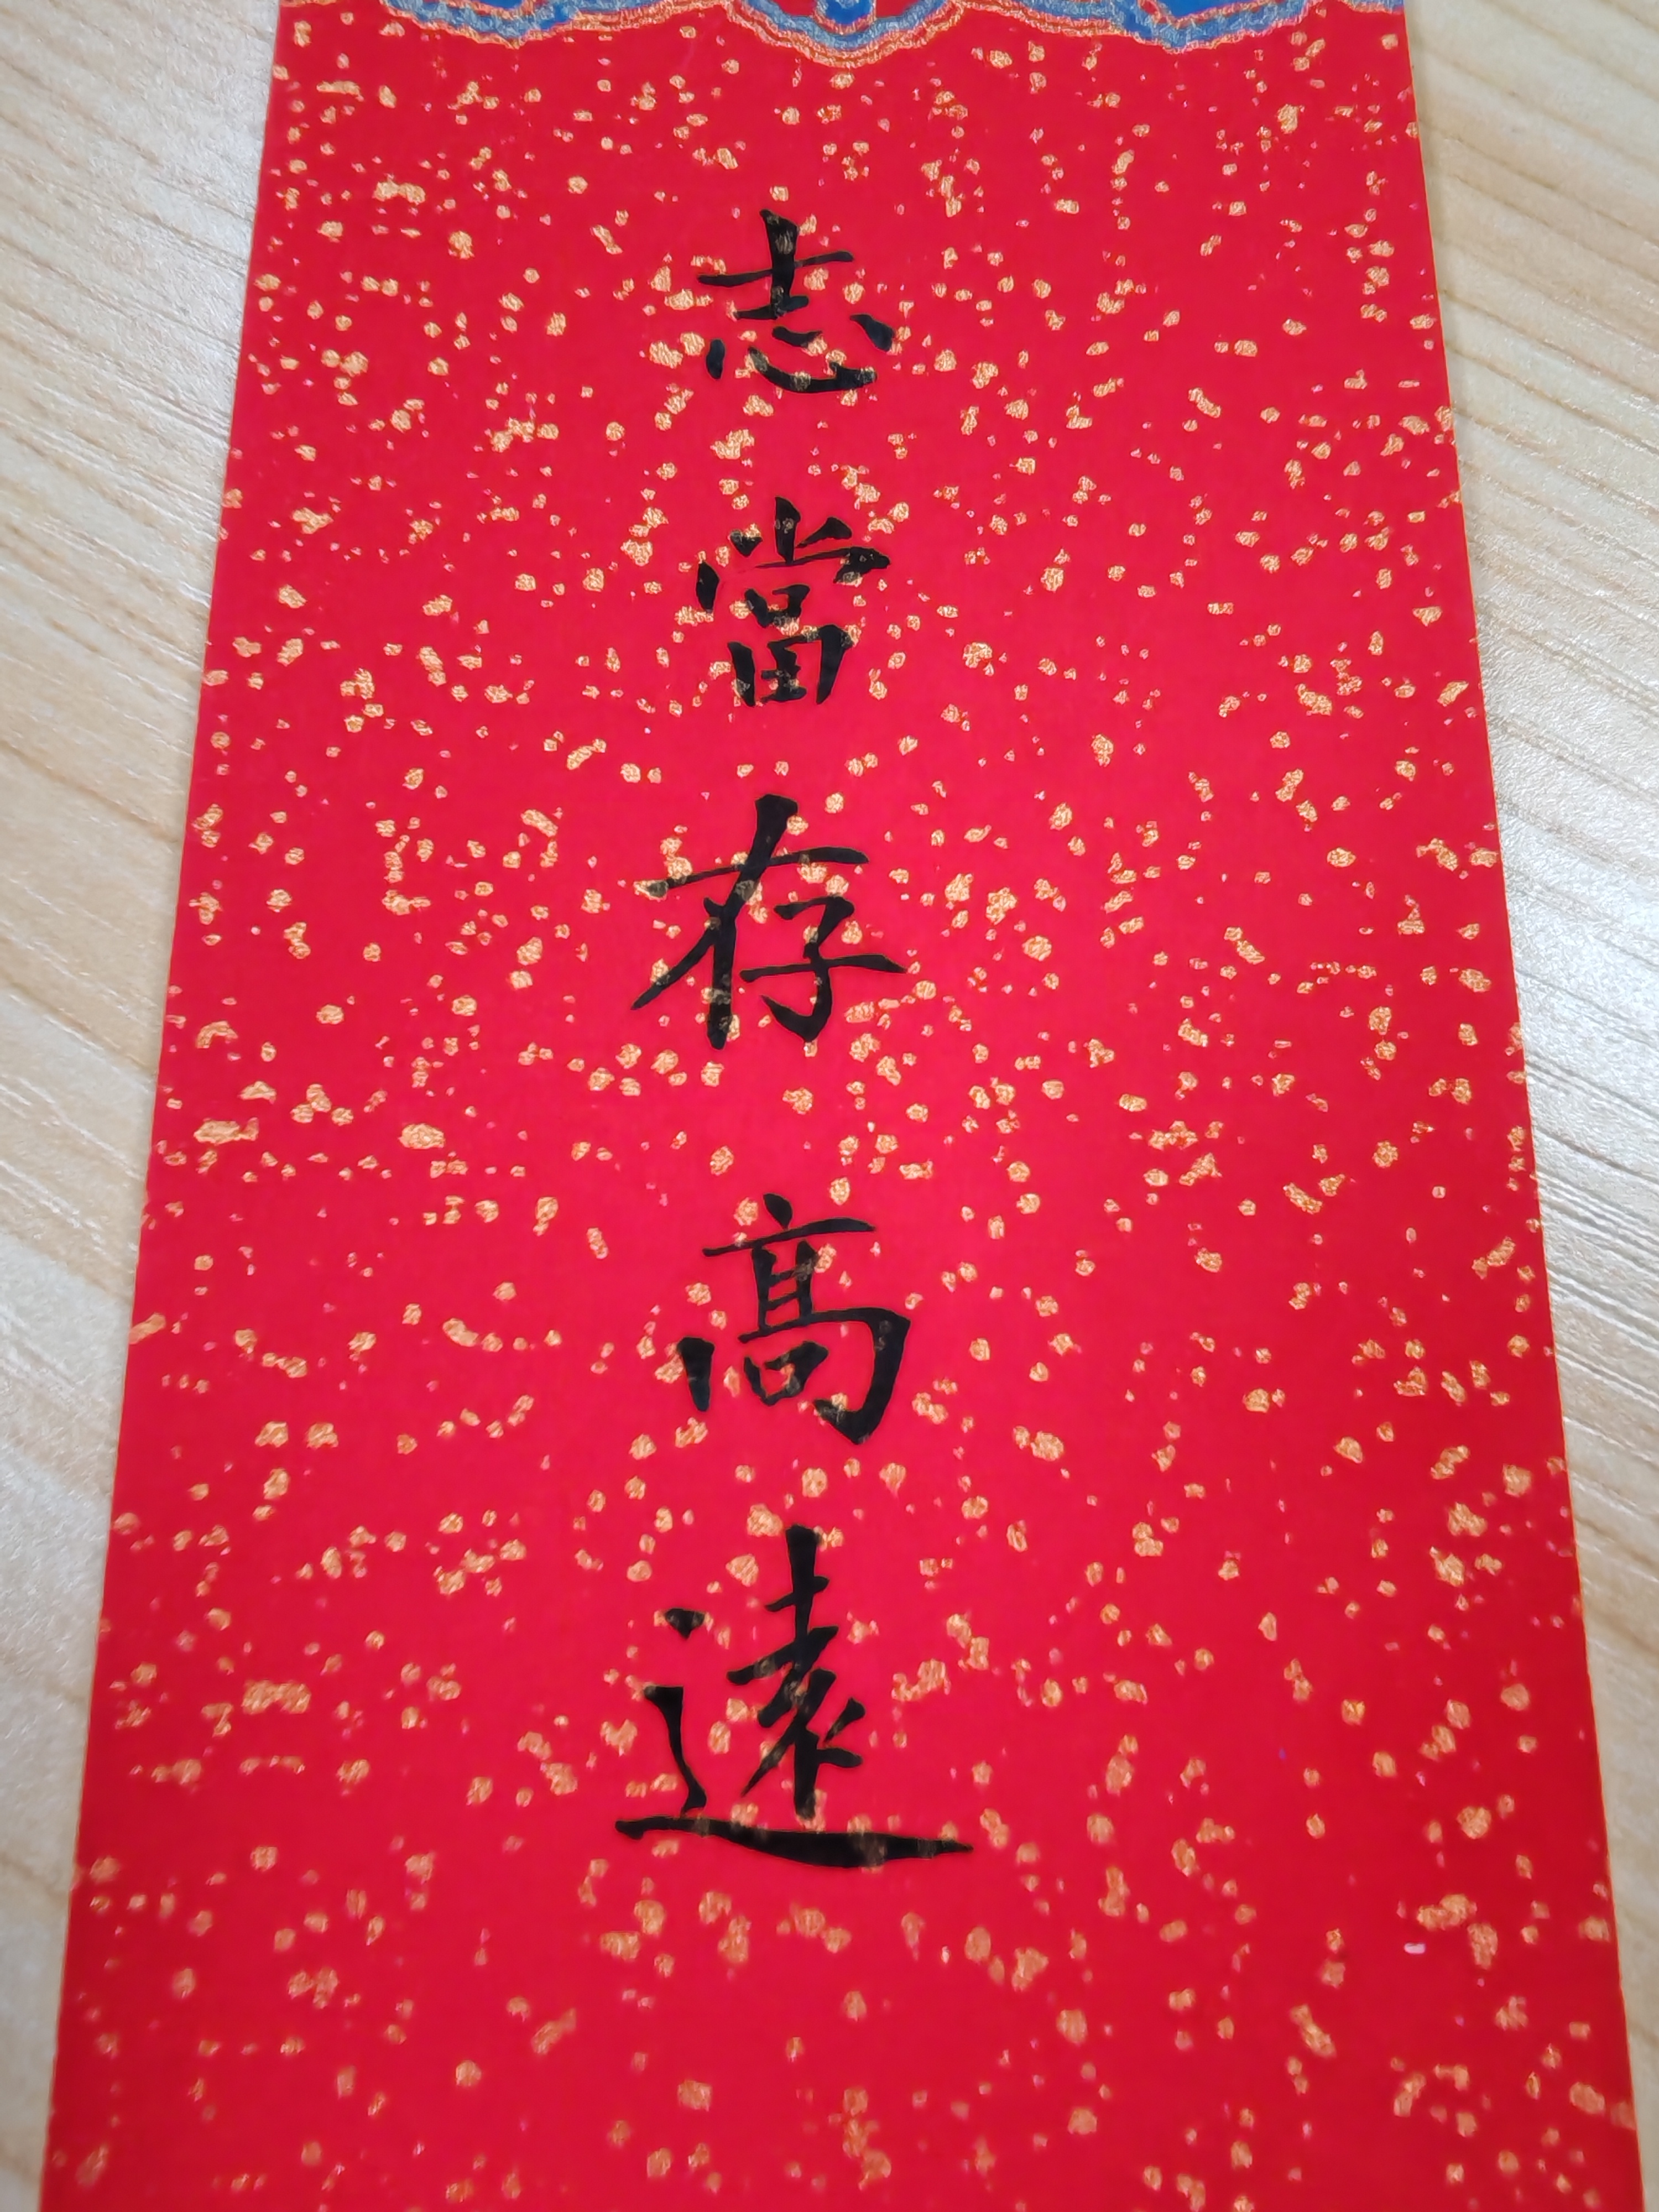 志當存髙遠